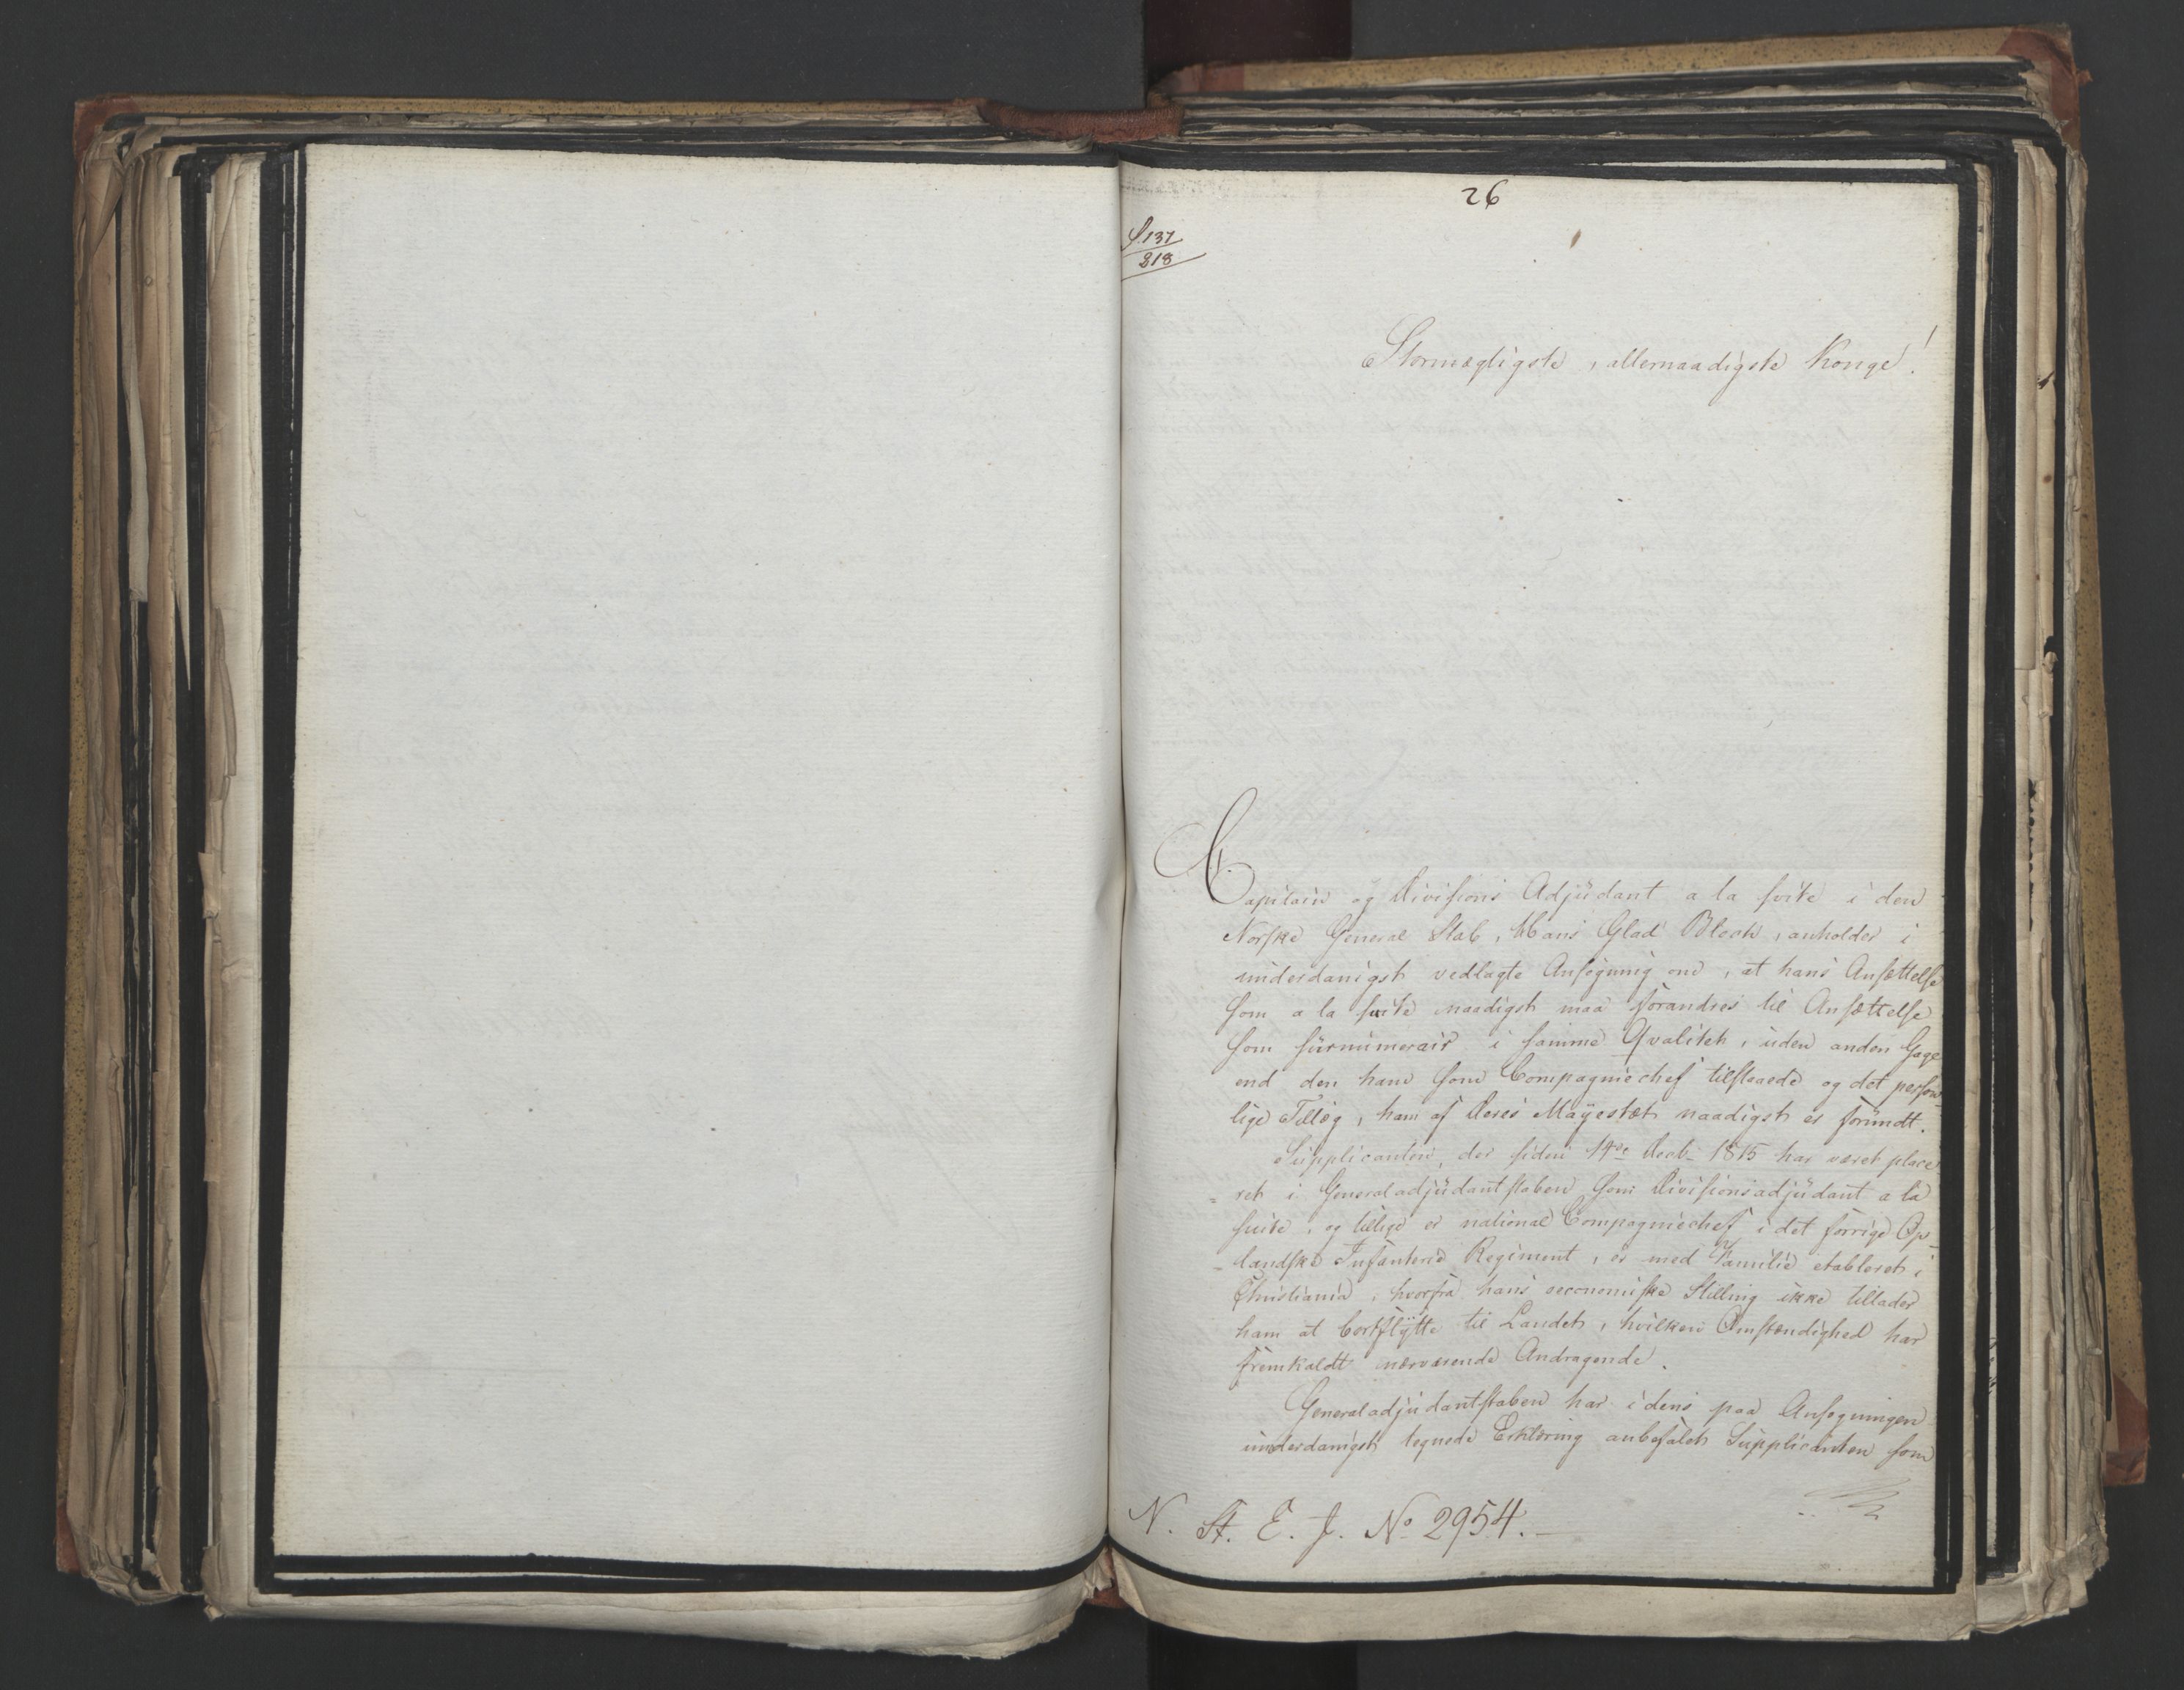 26
S. 137
218
Stormægtigste, allernaadigste Konge!
Capitain og Divisions Adjüdant a la suite i den
Norske General Stab, Hans Glad Bloch, anholder i
underdanigst vedlagte Ansøgning om, at hans Ansættelse
som a la suite naadigst maa forandres til Ansættelse
som sürnümerair i samme Qvalitet, uden anden Gage
end den ham som Compagniechef tilstaaede og det person-
lige Tillæg, ham af Deres Mayestæt naadigst er forundt.
Supplicanten, der siden 14de Decb. 1815 har været place-
ret i Generaladjüdantstaben som Divisionsadjüdant a la
suite, og tillige er national Compagniechef i det forrige Op-
landske Infanterie Regiment, er med Familie etableret i
Christiania, hvorfra hans oeconomiske Stilling ikke tillader
ham at bortflÿtte til Landet, hvilken Omstændighed har
fremkaldt nærværende Andragende.
Generaladjüdantstaben har i dens paa Ansøgningen
underdanigst tegnede Erklæring anbefalet Supplicanten som
N. St. E. J. No 2954.